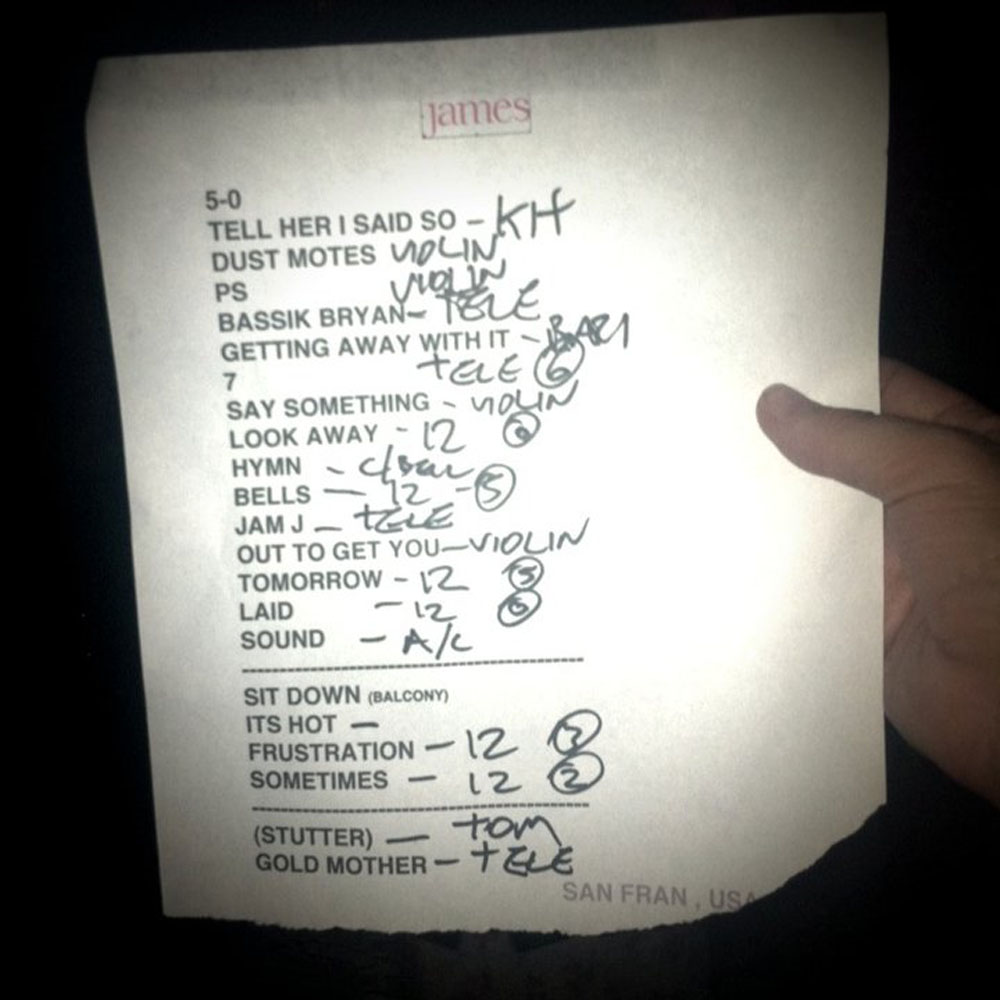 james
5-0
TELL HER I SAID SO - KH
DUST MOTES VIOLIN
PS VIOLIN
BASSIK BRYAN- TELE
GETTING AWAY WITH IT - BARI
7 TELE 6
SAY SOMETHING - VIOLIN
LOOK AWAY - 12
HYMN -
BELLS - 12 - 5
JAM J - TELE
OUT TO GET YOU-VIOLIN
TOMORROW - 12 5
LAID - 12 6
SOUND - A/C
SIT DOWN (BALCONY)
ITS HOT -
FRUSTRATION - 12 3
SOMETIMES - 12 2
(STUTTER) - TOM
GOLD MOTHER - TELE
SAN FRAN , USA